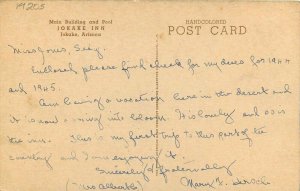 K9205
Main Building and Pool
JOKAKE INN
Jokake, Arizona
HANDCOLORED
POST CARD
Miss Agnes Seely
Enclosed please find check for my dues for 1944
and 1945.
Am having a vacation here in the desert and
it is now coming into bloom. It is lovely and so is
the inn. This is my first trip to this part of the
country and I am enjoying it.
Sincerely &
Mary E.